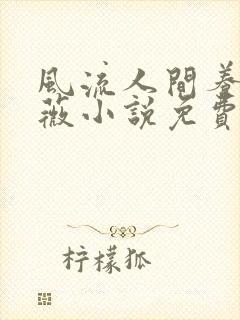 風流人間蓉
薇小說免費
柠檬狐